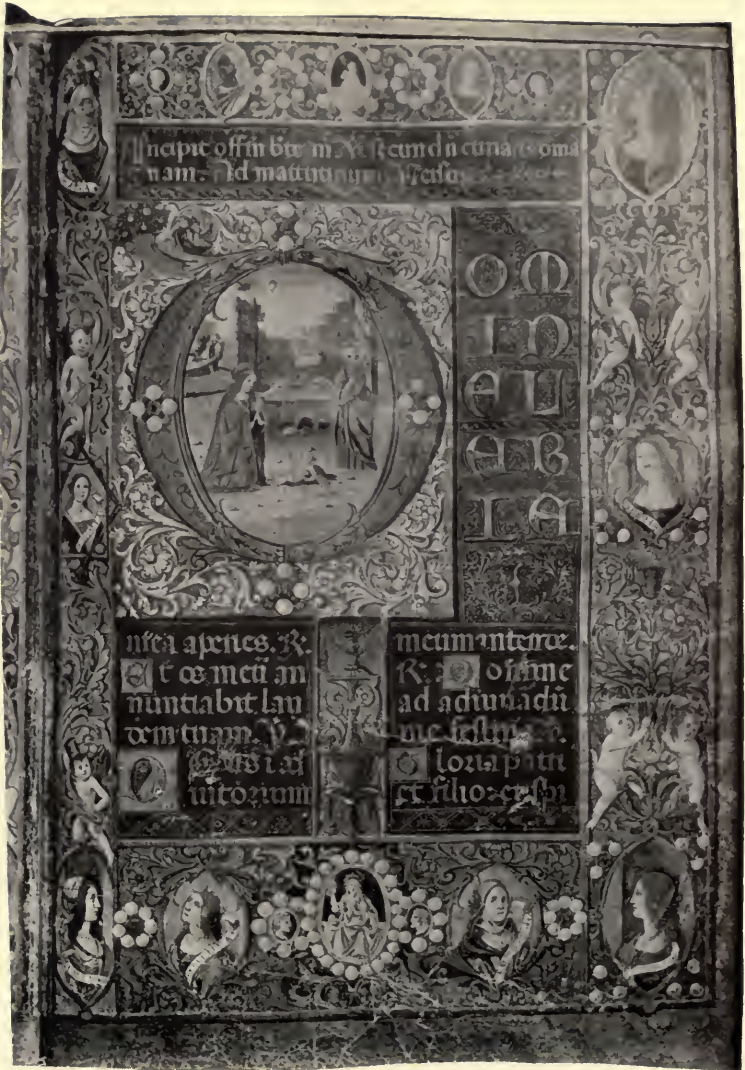 Incipit offm bte m secundū curiā roma
nam. Ad matutinum
D
OM
IN
E L
AB
IA
mea aperies. R.
Et os meū an
nuntiabit lau
dem tuam. V.
D i a
iutorium
meum intende.
R. Domine
ad adiuuādū
me festina.
Gloria patri
et filio et spi